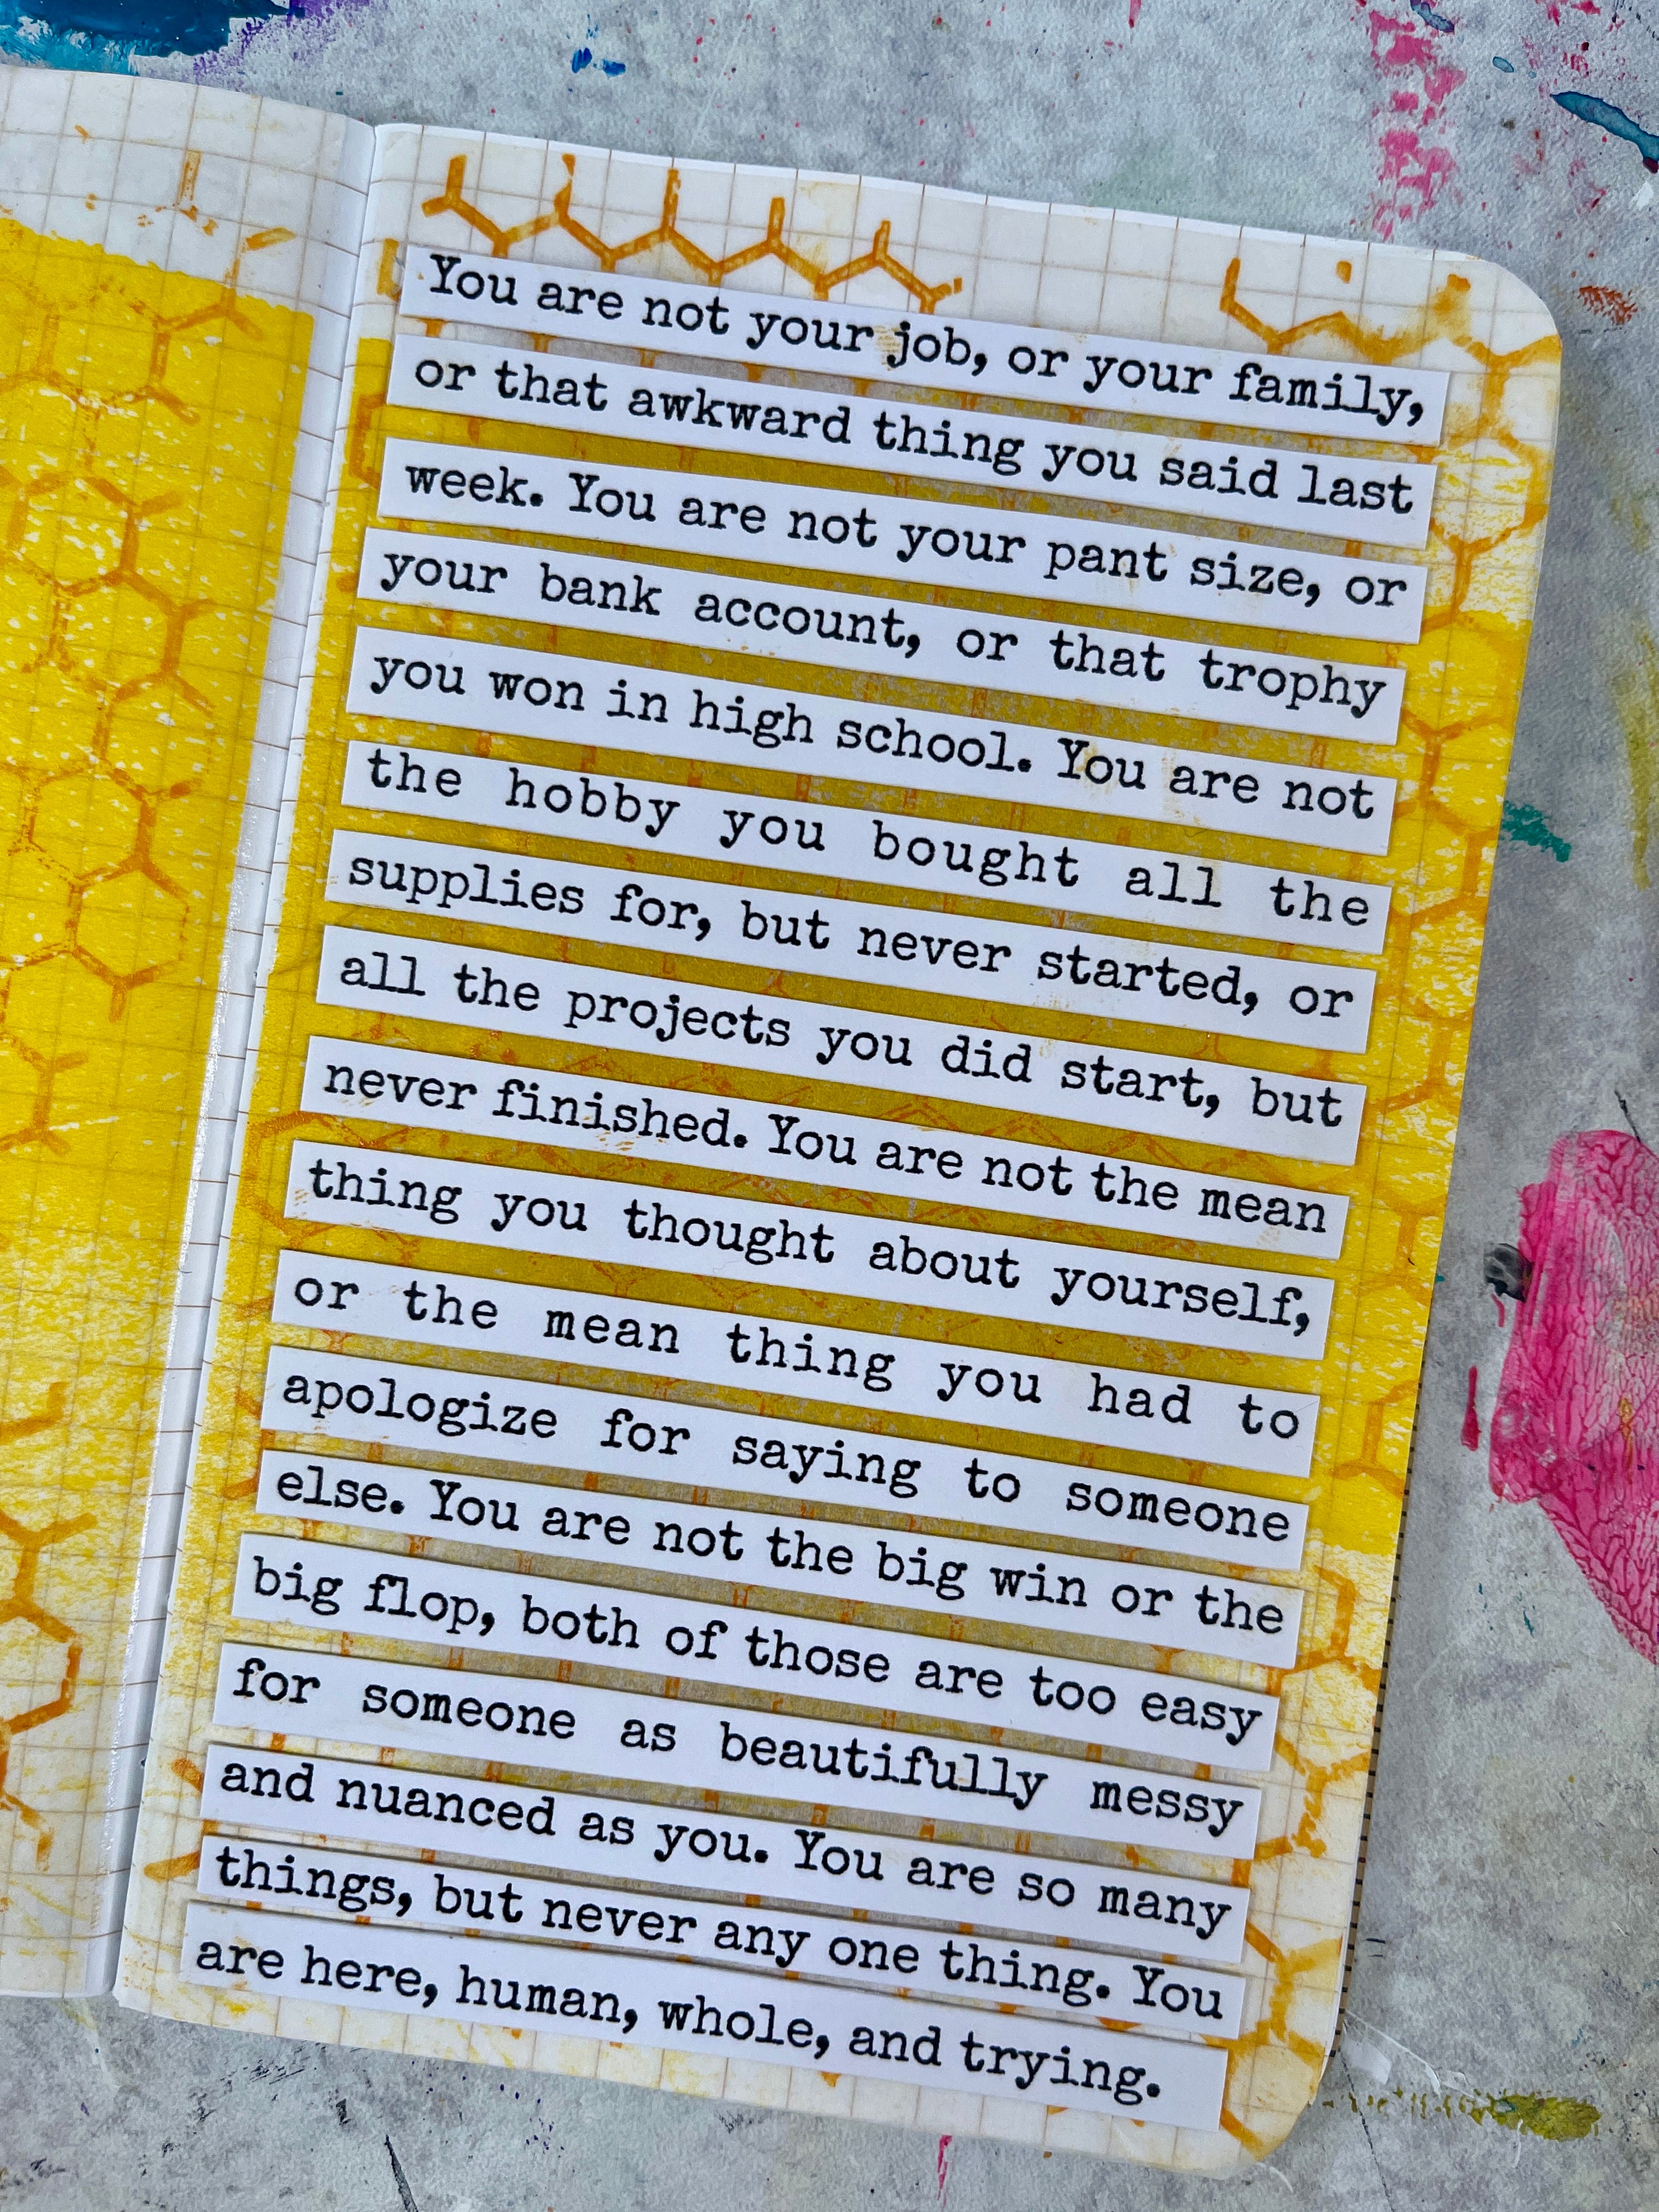 You are not your job, or your family,
or that awkward thing you said last
week. You are not your pant size, or
your bank account, or that trophy
you won in high school. You are not
the hobby you bought all the
supplies for, but never started, or
all the projects you did start, but
never finished. You are not the mean
thing you thought about yourself,
or the mean thing you had to
apologize for saying to someone
else. You are not the big win or the
big flop, both of those are too easy
for someone as beautifully messy
and nuanced as you. You are so many
things, but never any one thing. You
are here, human, whole, and trying.